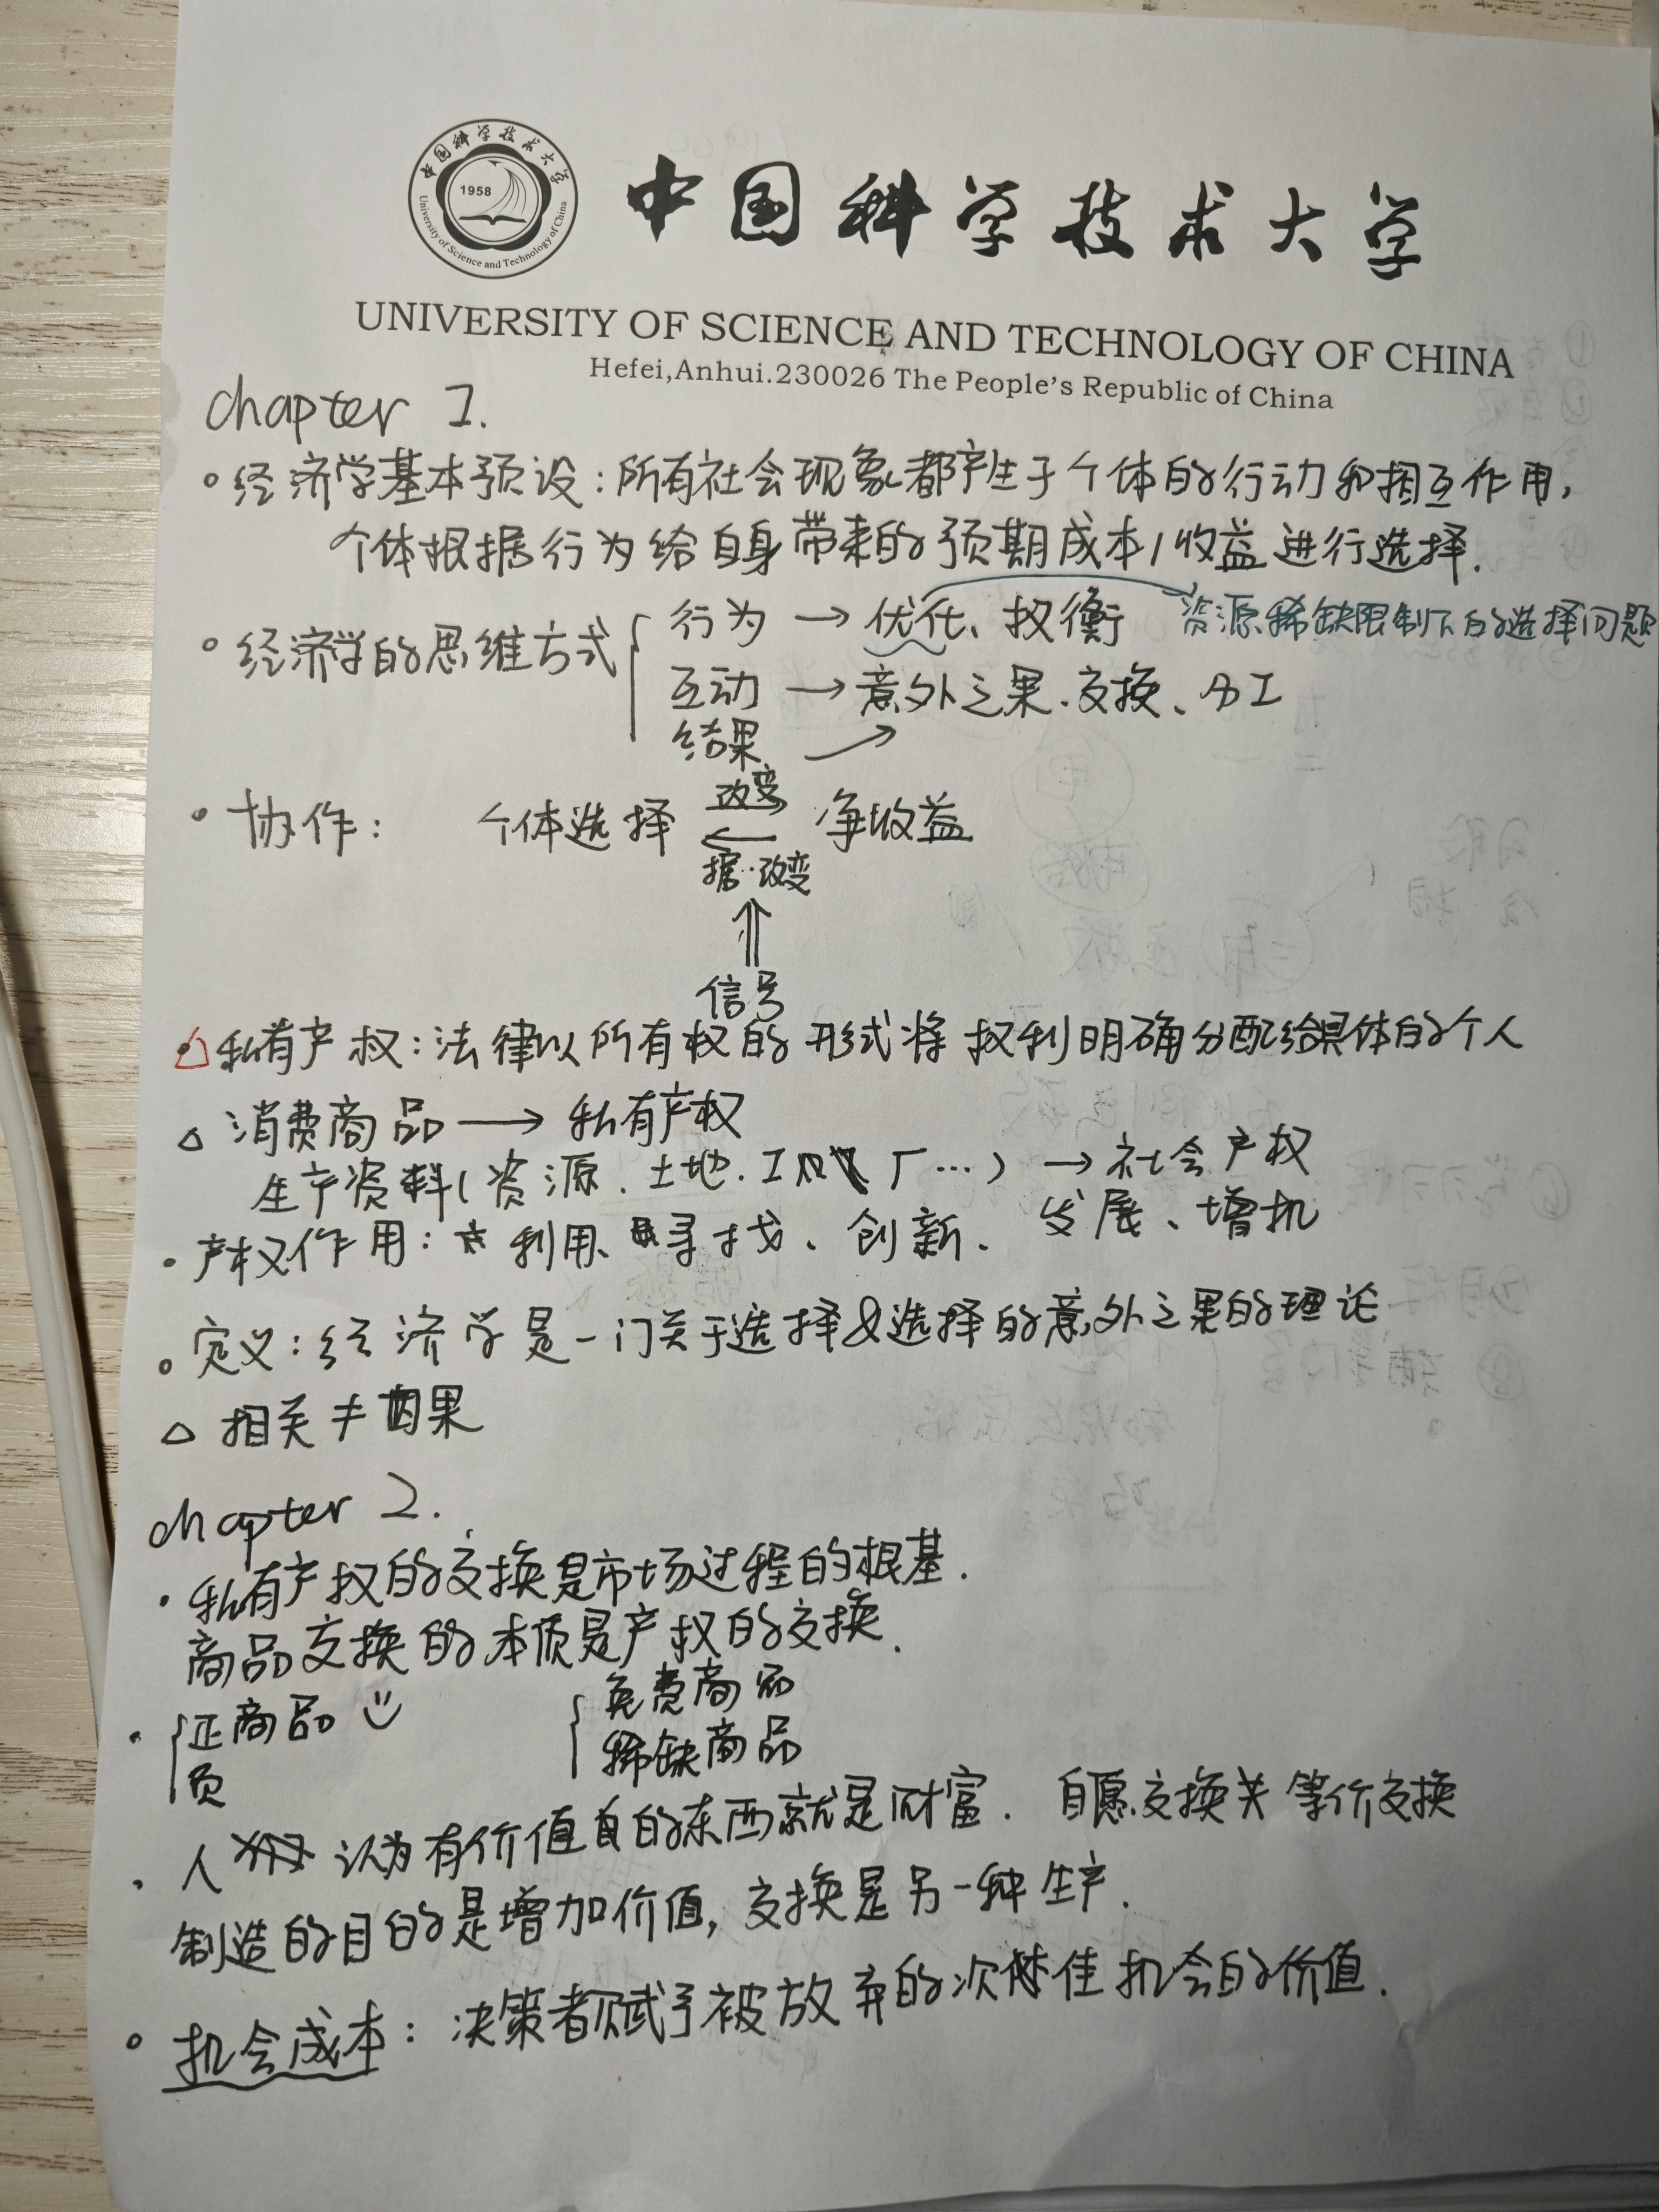 中国科学技术大学
1958
University of Science and Technology of China
中国科学技术大学
UNIVERSITY OF SCIENCE AND TECHNOLOGY OF CHINA
Hefei,Anhui.230026 The People's Republic of China
chapter 1.
经济学基本预设:所有社会现象都产生于个体的行动和相互作用,
个体根据行为给自身带来的预期成本/收益进行选择.
经济学的思维方式
行为 → 优化、权衡 资源稀缺限制下的选择问题
互动 → 意外之果.交换、分工
结果
协作: 个体选择 改变 净收益
据…改变
⇑
信号
△私有产权:法律以所有权的形式将权利明确分配给具体的个人
△ 消费商品 → 私有产权
生产资料(资源.土地.工厂…) → 社会产权
产权作用: 利用、寻找、创新. 发展、增机
定义:经济学是一门关于选择&选择的意外之果的理论
△ 相关≠因果
chapter 2.
私有产权的交换是市场过程的根基.
商品交换的本质是产权的交换.
正商品 免费商品
负 稀缺商品
人 认为有价值的东西就是财富. 自愿交换 等价交换
制造的目的是增加价值,交换是另一种生产.
机会成本:决策者赋予被放弃的次佳机会的价值.